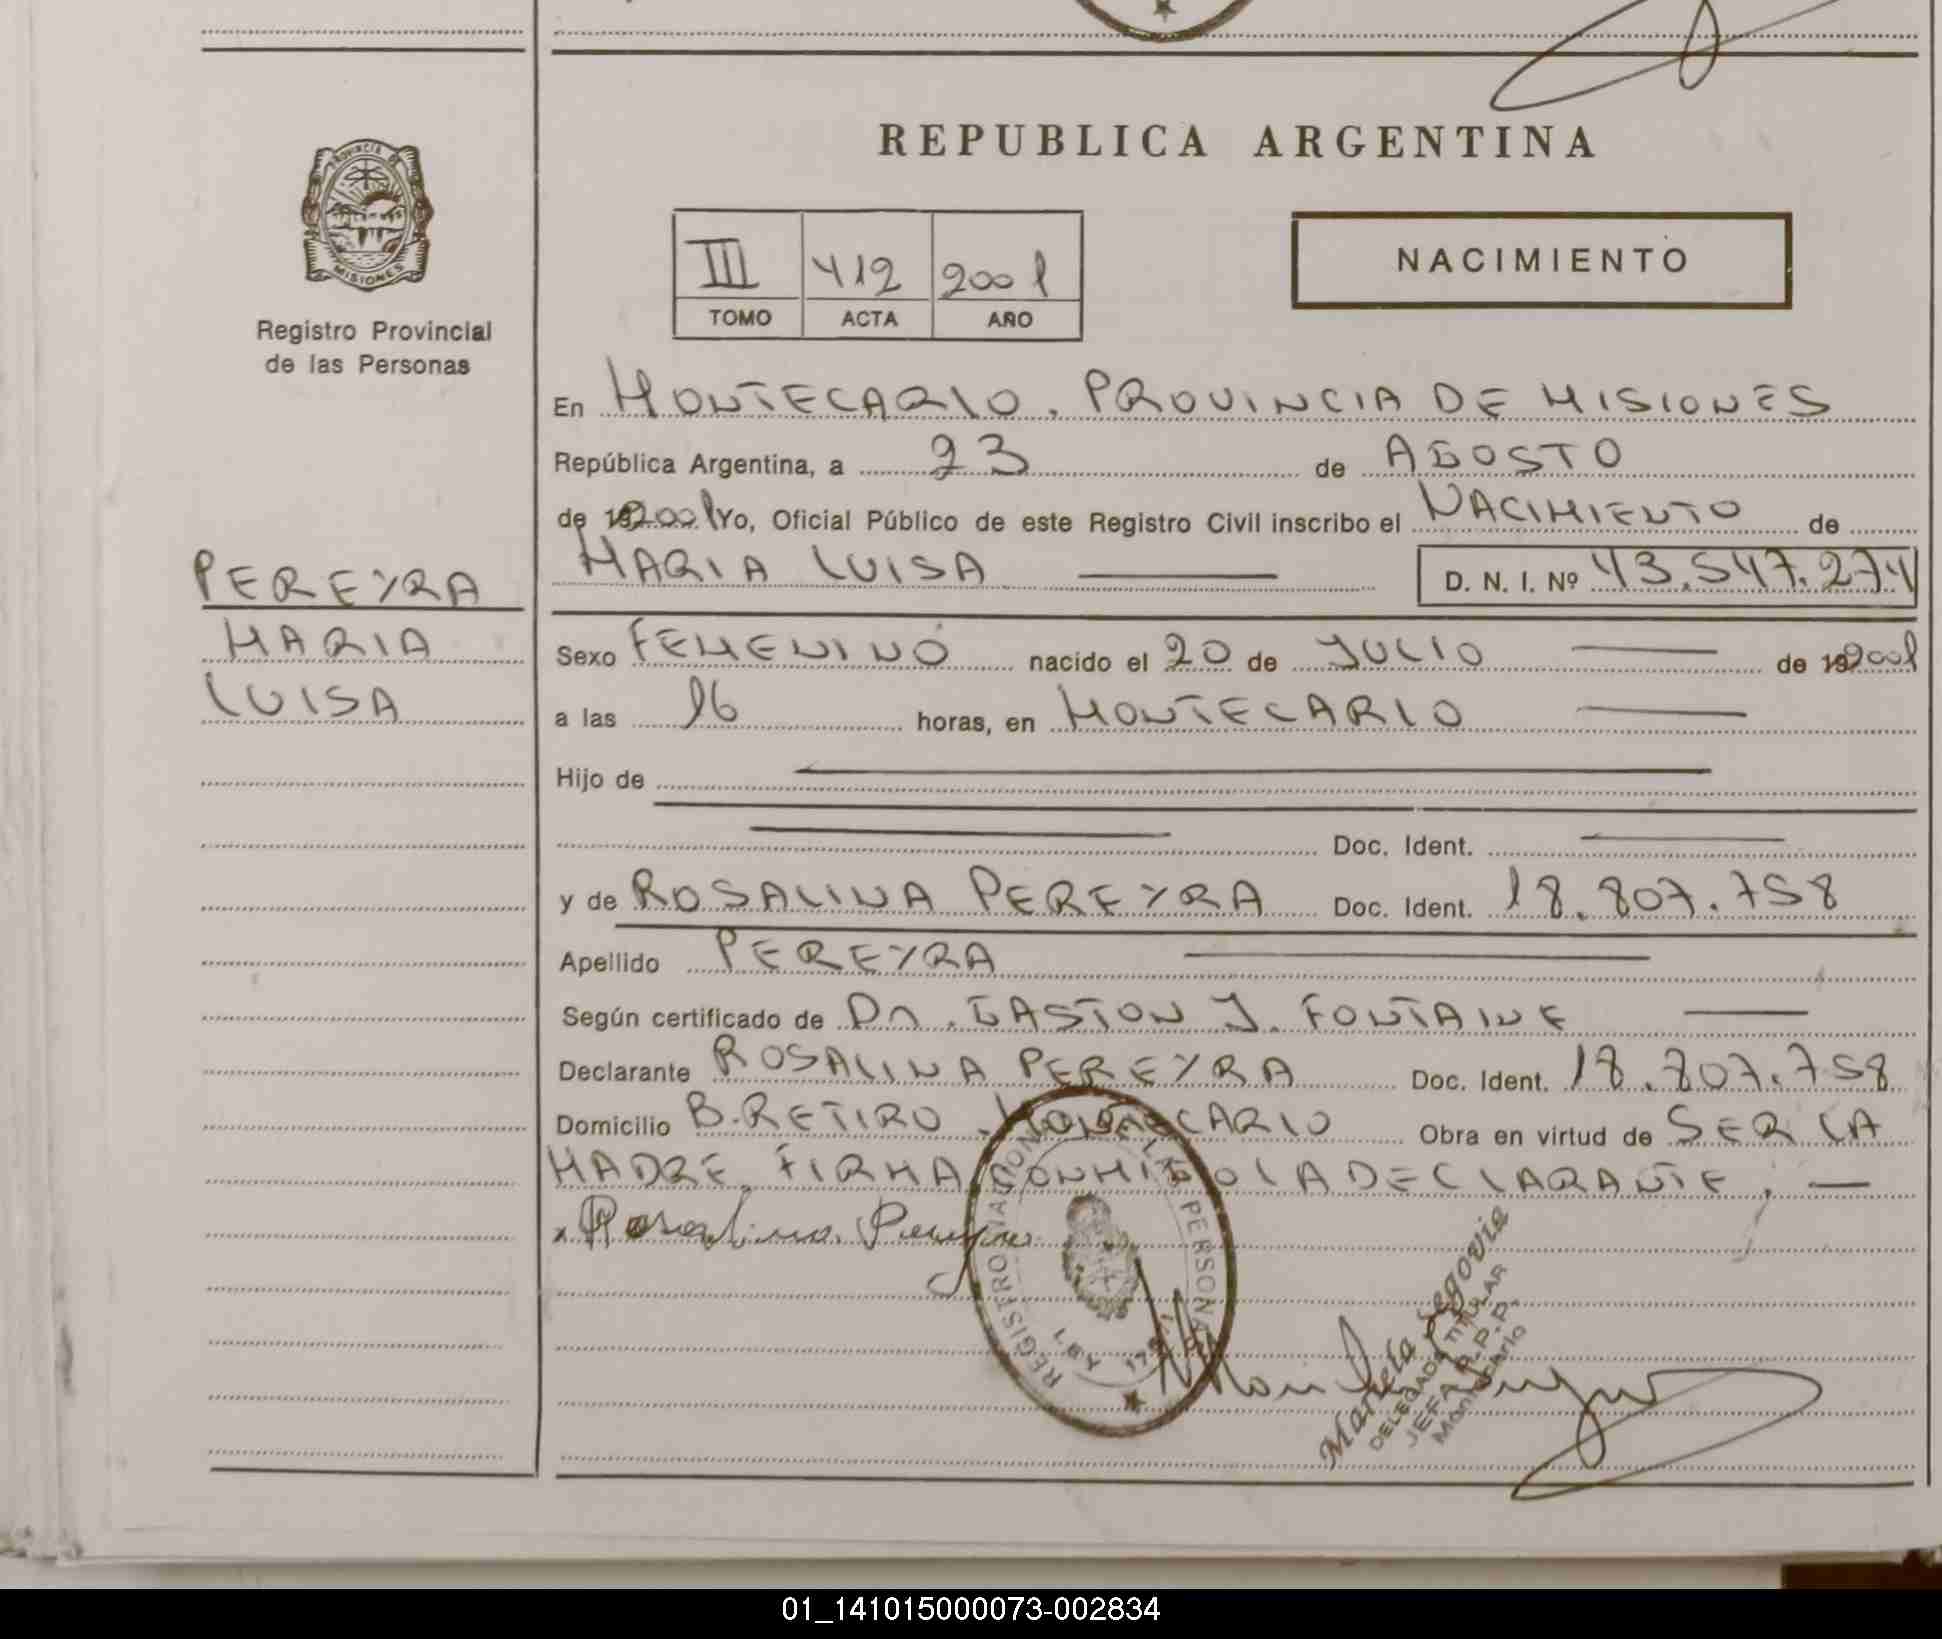 REPUBLICA ARGENTINA
PROVINCIA DE
MISIONES
Registro Provincial
de las Personas
III 412 2001
TOMO ACTA AÑO
NACIMIENTO
En MONTECARLO. PROVINCIA DE MISIONES
República Argentina, a 23 de AGOSTO
de 192001 Yo, Oficial Público de este Registro Civil inscribo el NACIMIENTO de
MARIA LUISA D. N. I. Nº 43.547.274
PEREYRA
MARIA
LUISA
Sexo FEMENINO nacido el 20 de JULIO de 192001
a las 16 horas, en MONTECARLO
Hijo de
Doc. Ident.
y de ROSALINA PEREYRA Doc. Ident. 18.807.758
Apellido PEREYRA
Según certificado de Dr. GASTON J. FONTAINE
Declarante ROSALINA PEREYRA Doc. Ident. 18.807.758
Domicilio B. RETIRO. MONTECARLO Obra en virtud de SER LA
MADRE. FIRMA CONMIGO LA DECLARANTE.
x Rosalina Pereyra
REGISTRO PERSONAS
Mariela Segovia
DELEGADA TITULAR
JEFA R.P.P.
Montecarlo
01_141015000073-002834